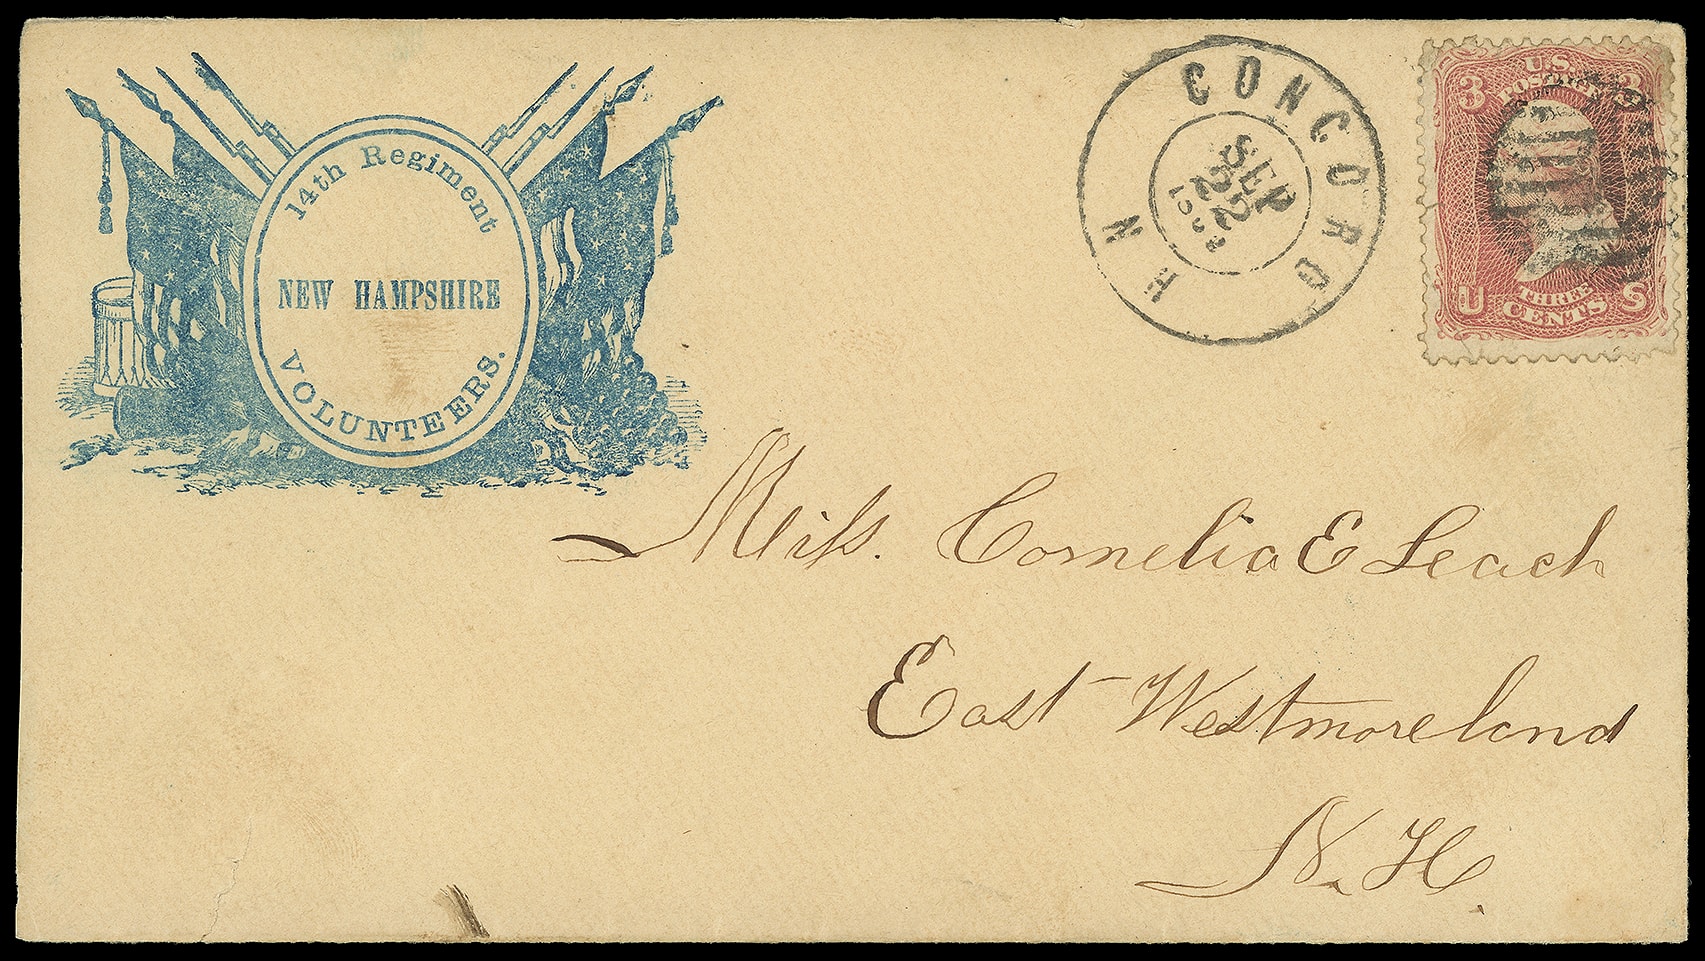 14th Regiment
NEW HAMPSHIRE
VOLUNTEERS.
CONCORD
N H
SEP
22
U.S.
POSTAGE
3 3
THREE
CENTS
U S
Miss. Cornelia E Leach
East Westmoreland
N. H.